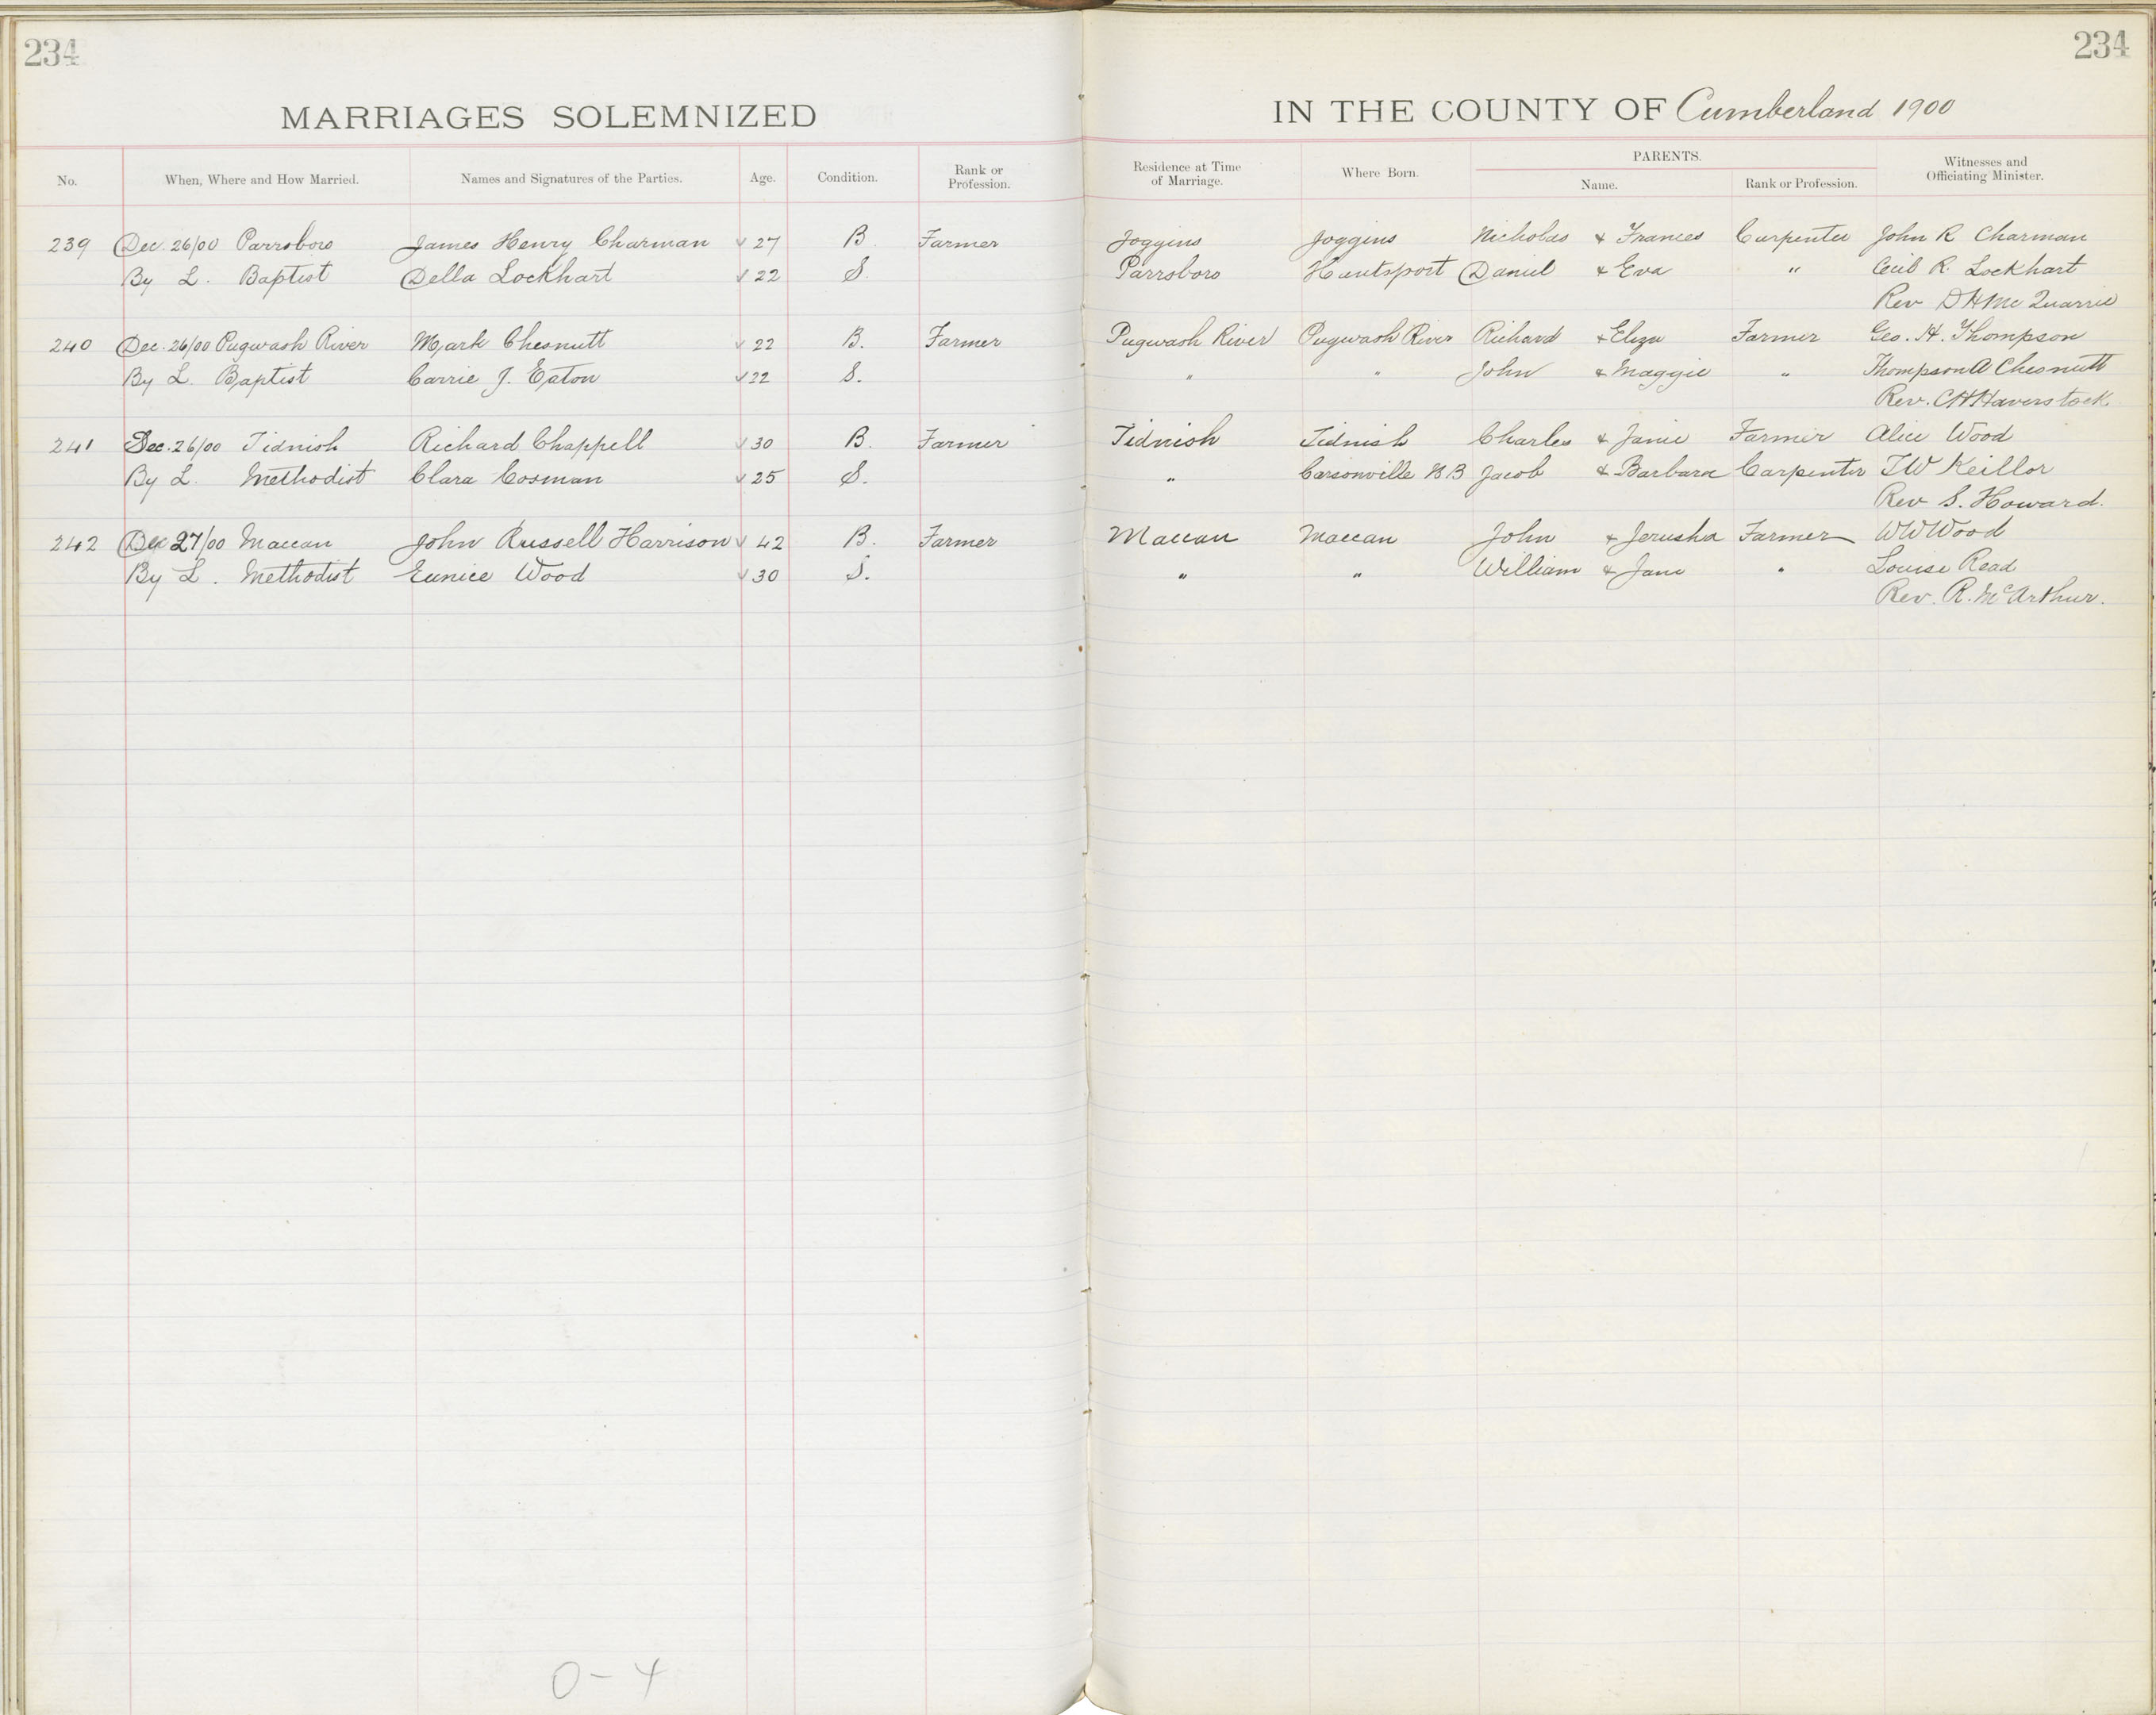 234 234
MARRIAGES SOLEMNIZED IN THE COUNTY OF Cumberland 1900
No. When, Where and How Married. Names and Signatures of the Parties. Age. Condition. Rank or Profession. Residence at Time of Marriage. Where Born. PARENTS. Name. Rank or Profession. Witnesses and Officiating Minister.
239 Dec. 26/00 Parrsboro James Henry Charman 27 B Farmer Joggins Joggins Nicholas & Frances Carpenter John R Charman
By L. Baptist Della Lockhart 22 S. Parrsboro Hantsport Daniel & Eva " Cecil R. Lockhart
Rev D H McQuarrie
240 Dec. 26/00 Pugwash River Mark Chesnutt 22 B. Farmer Pugwash River Pugwash River Richard & Eliza Farmer Geo. H. Thompson
By L. Baptist Carrie J. Eaton 22 S. " " John & Maggie " Thompson A Chesnutt
Rev. C H Haverstock
241 Dec. 26/00 Tidnish Richard Chappell 30 B. Farmer Tidnish Tidnish Charles & Janie Farmer Alice Wood
By L. Methodist Clara Cosman 25 S. " Carsonville N B Jacob & Barbara Carpenter T W Keillor
Rev S. Howard.
242 Dec 27/00 Maccan John Russell Harrison 42 B. Farmer Maccan Maccan John & Jerusha Farmer W W Wood
By L. Methodist Eunice Wood 30 S. " " William & Jane " Louise Read
Rev. R. McArthur.
0-4